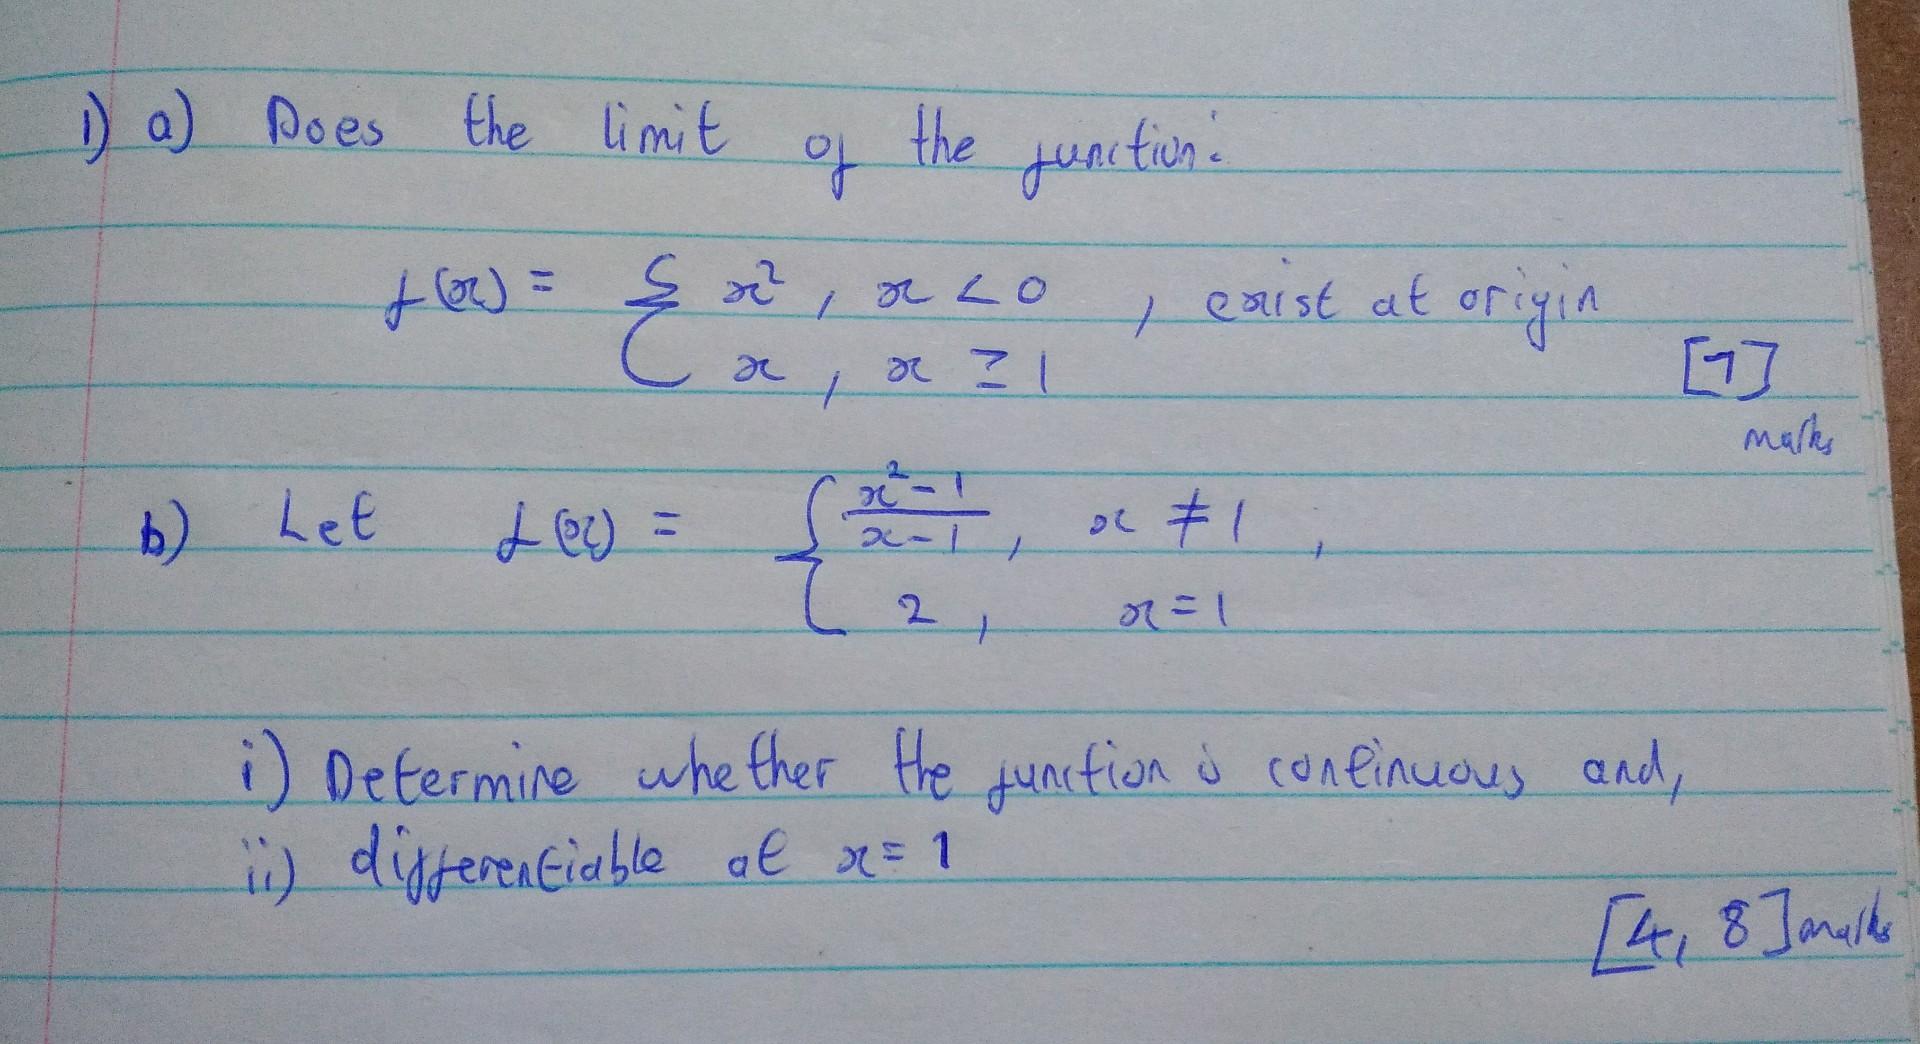 1) a) Does the limit of the function:
f(x) = { x², x < 0 , exist at origin
x, x ≥ 1 [7]
marks
b) Let f(x) = { x²-1/x-1, x ≠ 1,
2, x = 1
i) Determine whether the function is continuous and,
ii) differentiable at x = 1
[4, 8] marks